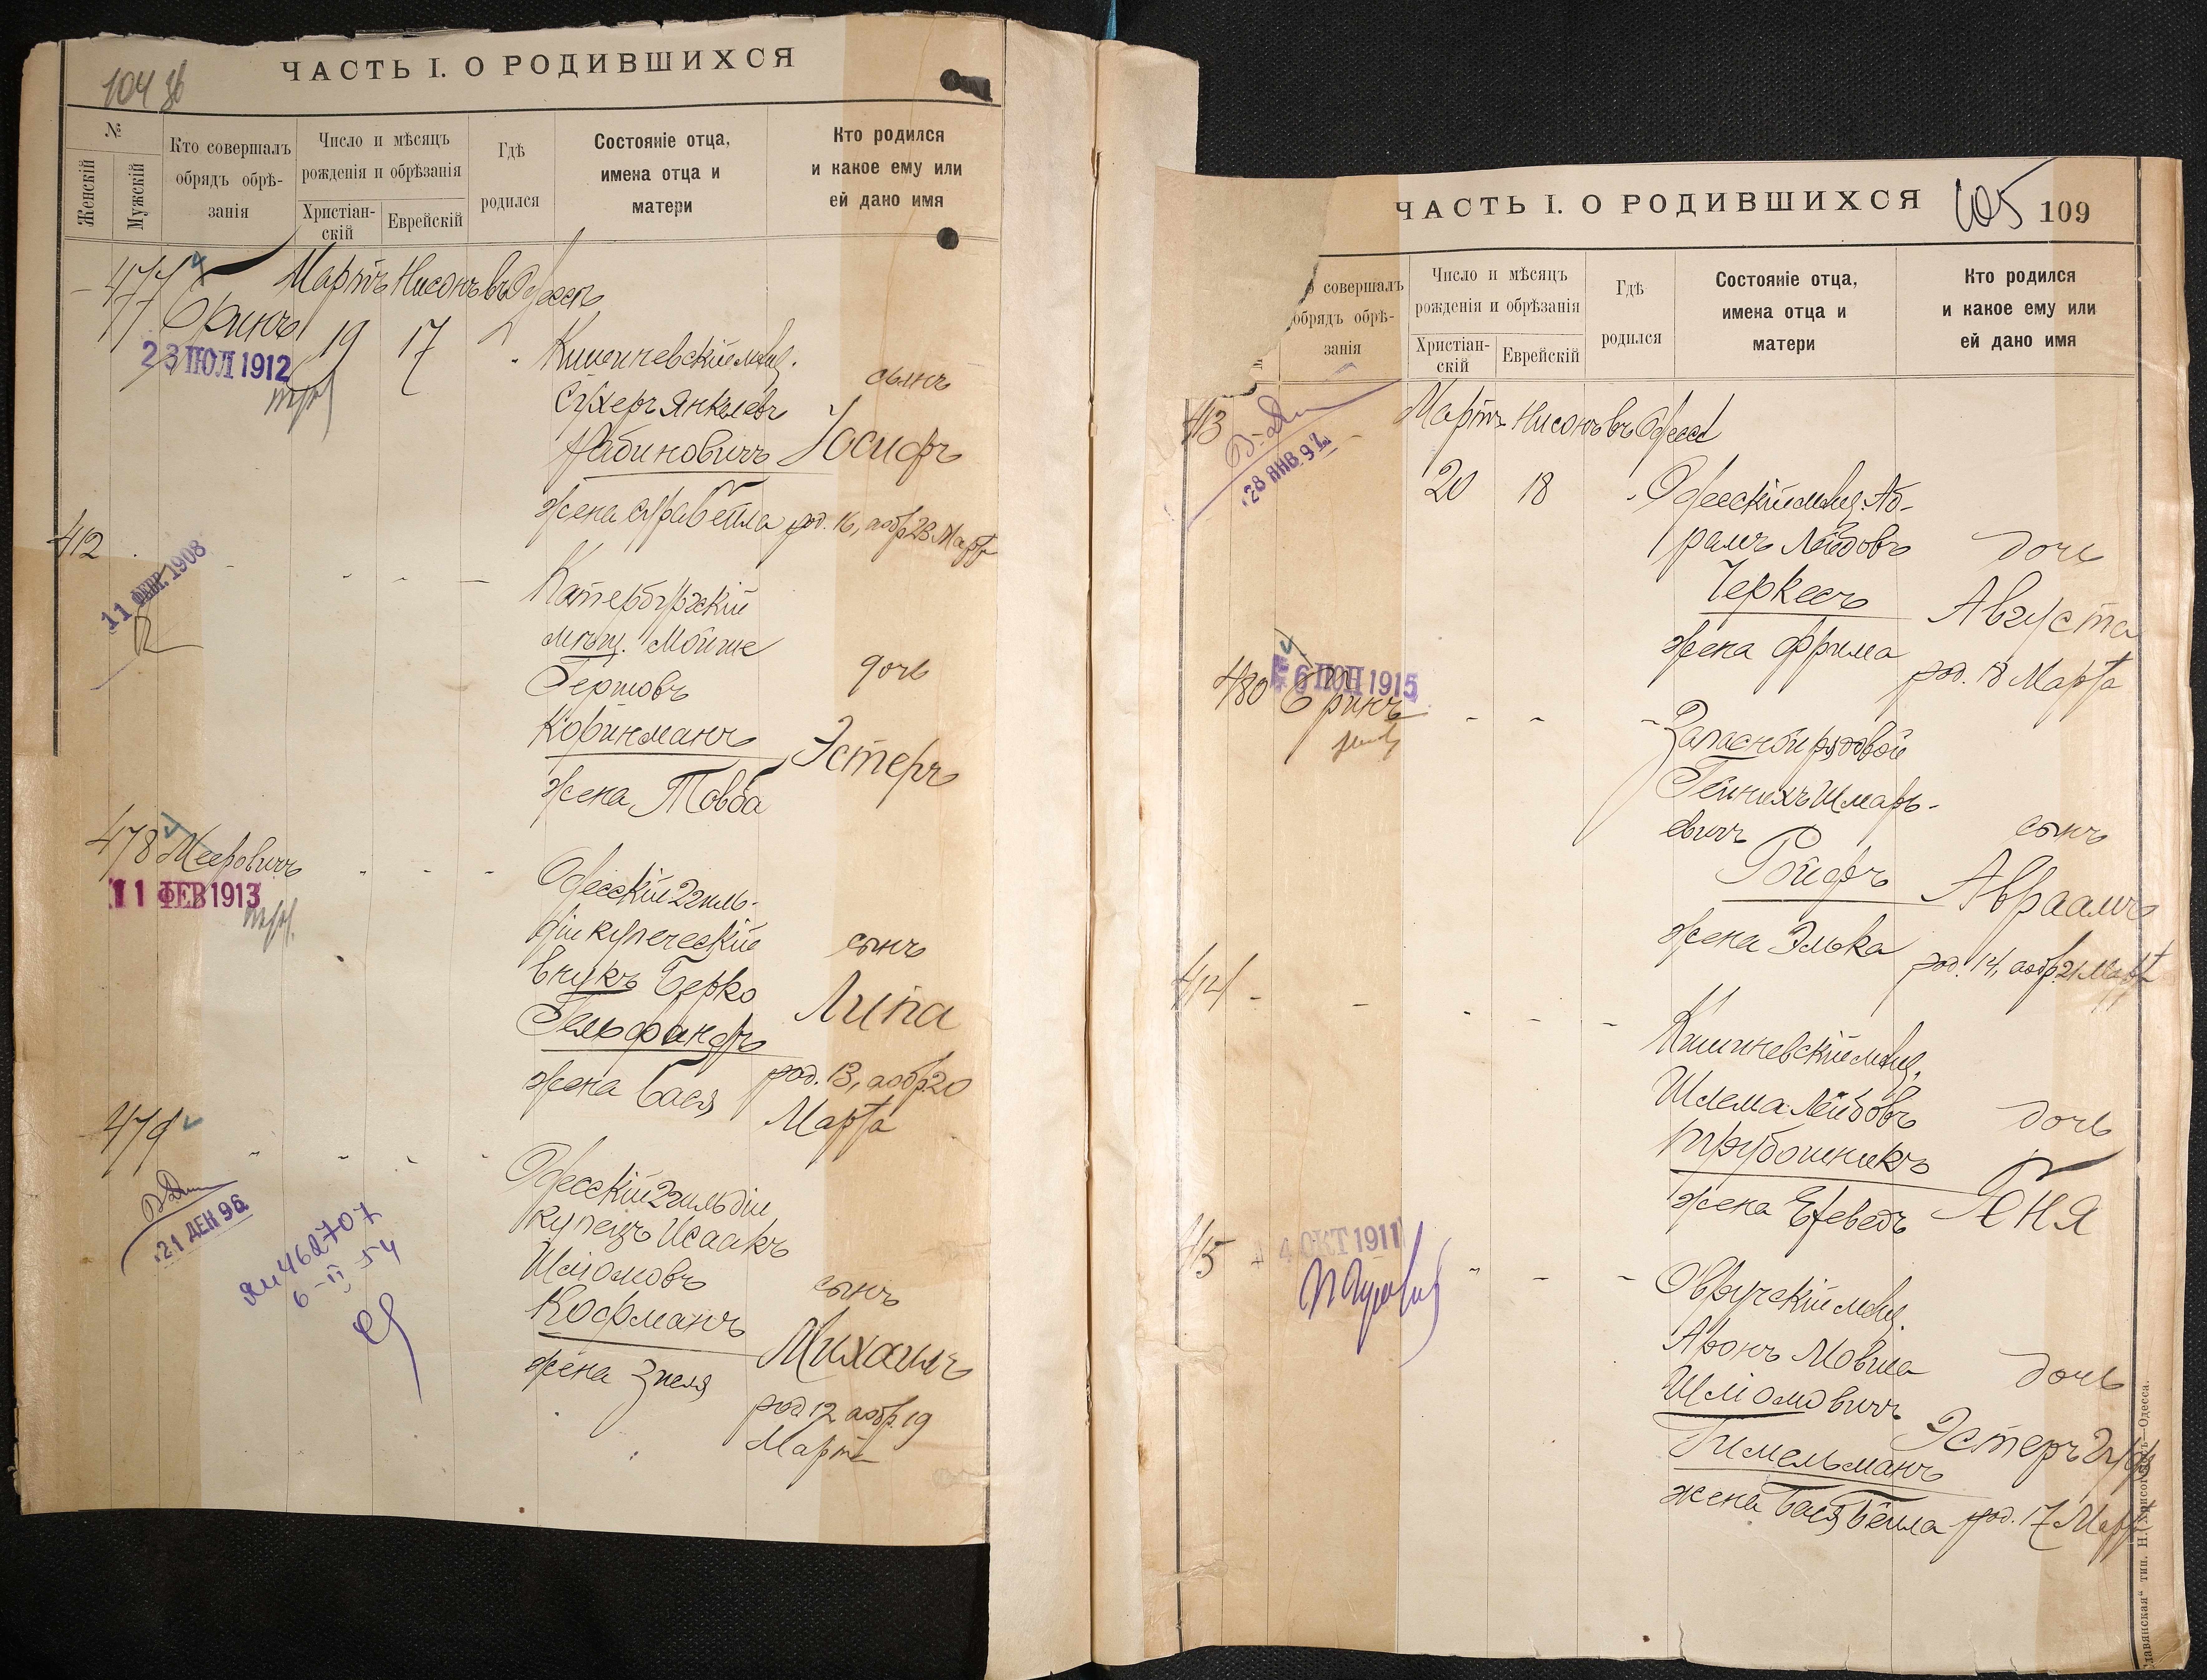 104 об
ЧАСТЬ I. О РОДИВШИХСЯ
№
Женскій
Мужскій
Кто совершалъ
обрядъ обрѣ-
занія
Число и мѣсяцъ
рожденія и обрѣзанія
Христіан-
скій
Еврейскій
Гдѣ
родился
Состояніе отца,
имена отца и
матери
Кто родился
и какое ему или
ей дано имя
477
Бринъ
23 ІЮЛ 1912
Мартъ Нисонъ въ Одессѣ
19 17
Кишиневскій мѣщ.
Сухеръ Янкелевъ
Рабиновичъ
жена Сура Бейла
сынъ
Іосифъ
род. 16, а обр. 23 Марта
412
11 ФЕВР. 1908
Катербургскій
мѣщ. Мойше
Гершовъ
Койфманъ
жена Товба
дочь
Эстеръ
478 Мееровичъ
11 ФЕВ 1913
Одесскій 2 гиль-
діи купеческій
внукъ Берко
Гельфандъ
жена Бася
сынъ
Липа
род. 13, а обр. 20
Марта
479
21 ДЕК 96
462707
6-II-54
Одесскій 2 гильдіи
купецъ Исаакъ
Шліомовъ
Кофманъ
жена Зисля
сынъ
Михаилъ
род 12 а обр. 19
Марта
ЧАСТЬ I. О РОДИВШИХСЯ
105
109
совершалъ
обрядъ обрѣ-
занія
Число и мѣсяцъ
рожденія и обрѣзанія
Христіан-
скій
Еврейскій
Гдѣ
родился
Состояніе отца,
имена отца и
матери
Кто родился
и какое ему или
ей дано имя
413
28 ЯНВ 97
Мартъ Нисонъ въ Одессѣ
20 18
Одесскій мѣщ. Аб-
рамъ Лейбовъ
Черкесъ
жена Фрима
дочь
Августа
род. 18 Марта
480 Бринъ
1915
Запасной рядовой
Гейнихъ Шмарь-
евичъ
Ройфъ
жена Элька
сынъ
Авраамъ
род. 14, а обр. 21 Марта
414
Кишиневскій мѣщ.
Шлема Лейбовъ
Трубошникъ
жена Ехеведъ
дочь
Геня
415
4 ОКТ 1911
Овручскій мѣщ.
Аронъ Мовша
Шліомовичъ
Гимельманъ
жена Бася Бейла
дочь
Эстеръ
род. 17 Марта
Славянская“ тип. Н. Хрисогелосъ—Одесса.